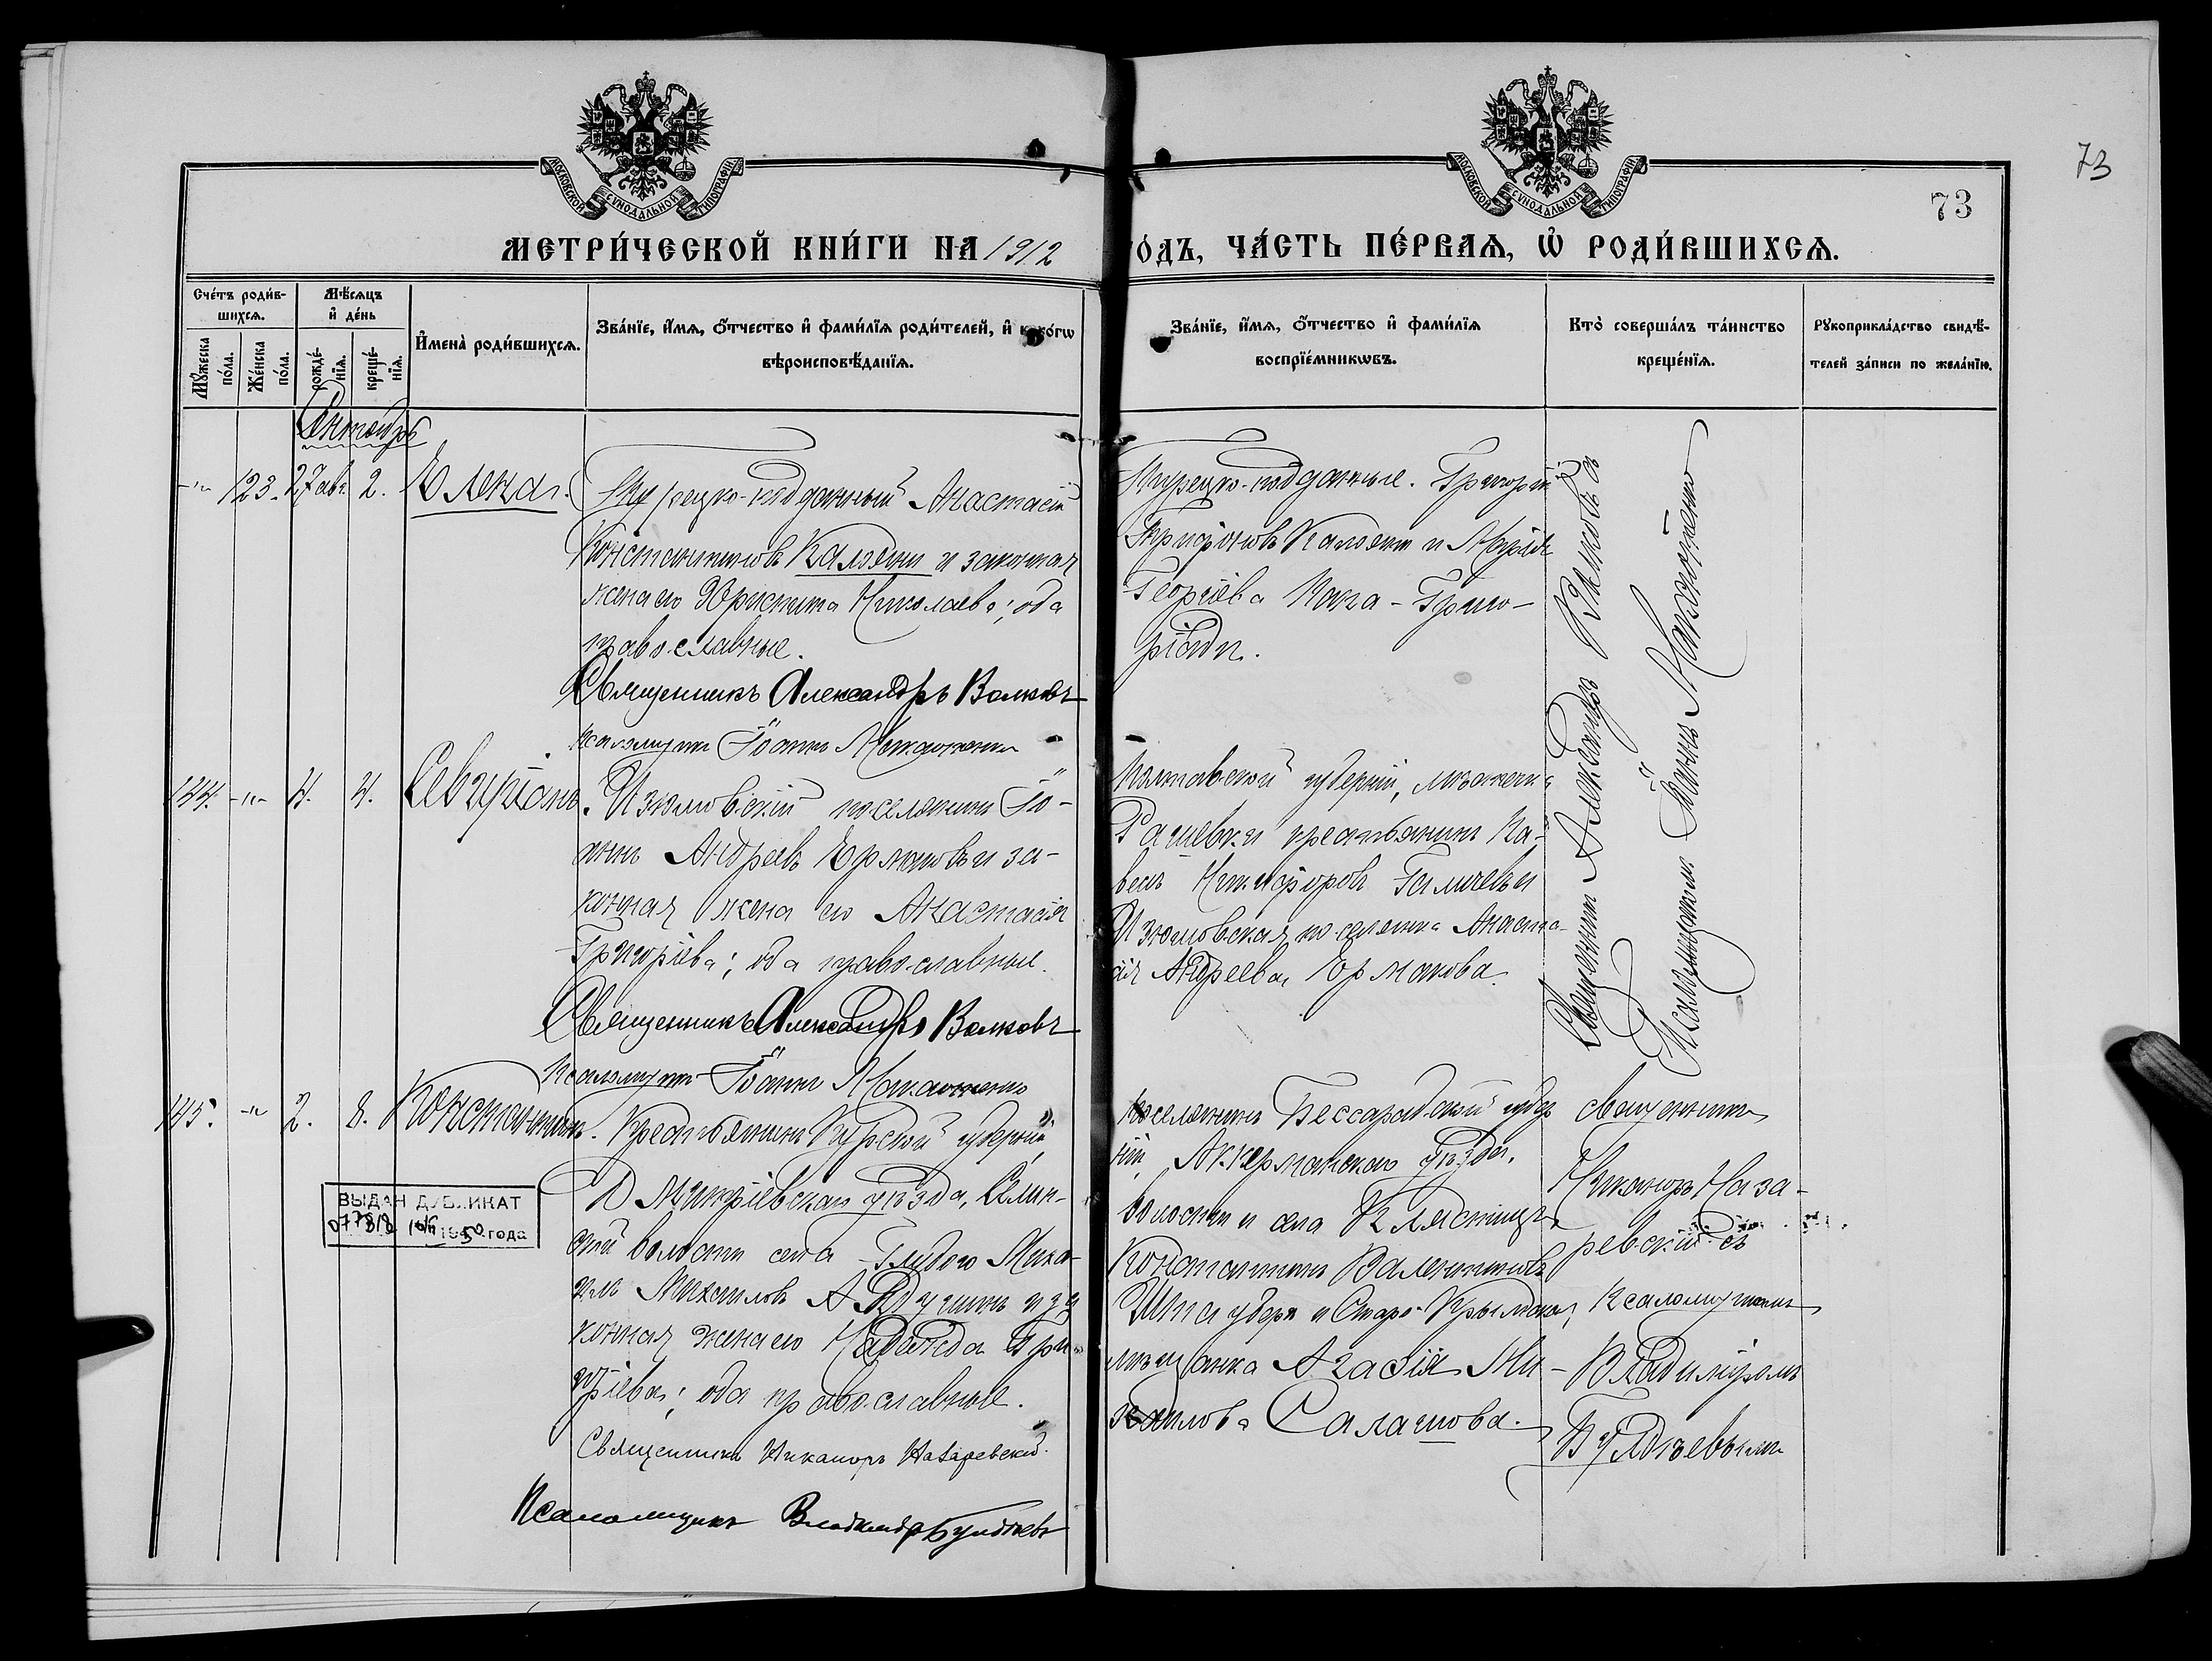 73
73
МОСКОВСКОЙ СѴНОДАЛЬНОЙ ТИПОГРАФІИ
МОСКОВСКОЙ СѴНОДАЛЬНОЙ ТИПОГРАФІИ
МЕТРИ́ЧЕСКОЙ КНИ́ГИ НА 1912
ОДЪ, ЧА́СТЬ ПЕ́РВАѦ, Ѡ РОДИ́ВШИХСѦ.
Сче́тъ роди́в-
шихсѧ.
Мѣ́сѧцъ
и҆ де́нь
Мꙋ́жеска
по́ла.
Же́нска
по́ла.
рожде́-
нїѧ.
креще́-
нїѧ.
И҆мена̀ роди́вшихсѧ.
Зва́нїе, и҆́мѧ, ѻ҆́тчество и҆ фами́лїѧ роди́телей, и҆ како́гѡ
вѣроисповѣ́данїѧ.
Зва́нїе, и҆́мѧ, ѻ҆́тчество и҆ фами́лїѧ
воспрїе́мникѡвъ.
Кто̀ соверша́лъ та́инство
креще́нїѧ.
Рꙋкоприкла́дство свидѣ́-
телей за́писи по жела́нїю.
Сентябрь
-"- 123. 27 авг. 2. Елена.
Турецко-подданный Анастасій
Константиновъ Калояни и законная
жена его Николаева; оба
православные.
Священникъ Александръ Волковъ
Псаломщикъ Іоаннъ Макаоненко
Турецко-подданные. Григорій
Калояни и Марія
Георгіева Кара-Григо-
ріади.
Священникъ Александръ Волковъ съ
Псаломщикомъ Іоанномъ
144. -"- 4. 4. Севиріанъ.
Изюмовскій поселянинъ Іо-
аннъ Андреевъ Ермаковъ и за-
конная жена его Анастасія
Григоріева; оба православные.
Священникъ Александръ Волковъ
Псаломщикъ Іоаннъ Макаоненко
Полтавской губерніи, мѣстечка
Рашевки крестьянинъ Па-
велъ Никифоровъ Галичевъ и
Изюмовская поселянка Анаста-
сія Андреева Ермакова.
145. -"- 2. 8. Константинъ.
Крестьянинъ Курской губерніи,
Дмитріевскаго уѣзда,
ской волости села Глубого Миха-
илъ Михаиловъ и за-
конная жена его Надежда Гри-
горіева; оба православные.
Священникъ Никаноръ Назаревскій.
Псаломщикъ Владиміръ Булдыевъ
поселянинъ Бессарабской губер-
ніи, Аккерманскаго уѣзда,
волости и села Клястицъ
Константинъ Валентиновъ
и Старо-Крымская
мѣщанка Агафія Ми-
хаилова Салашова.
Священникъ
Никаноръ Наза-
ревскій съ
Псаломщикомъ
Владиміромъ
Булдыевымъ
ВЫДАН ДУБЛИКАТ
1950 года